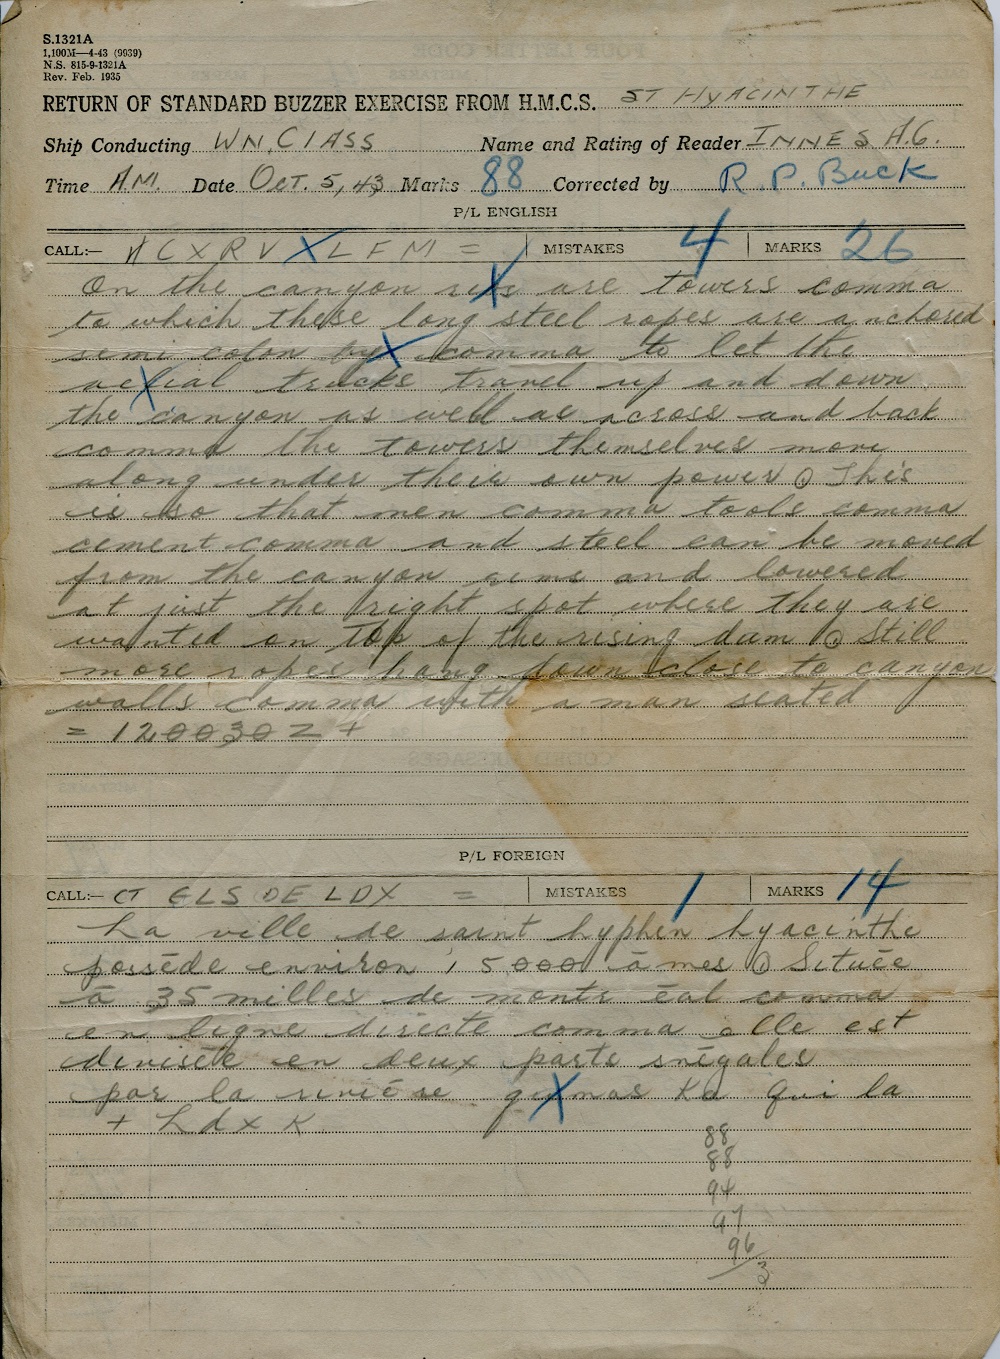 S.1321A
1,100M—4-43 (9939)
N.S. 815-9-1321A
Rev. Feb. 1935
RETURN OF STANDARD BUZZER EXERCISE FROM H.M.C.S. ST HYACINTHE
Ship Conducting WN. CLASS Name and Rating of Reader INNES A.G.
Time A.M. Date OCT. 5, 43 Marks 88 Corrected by R. P. Buck
P/L ENGLISH
CALL:— A C X R V X L F M = MISTAKES 4 MARKS 26
On the canyon are towers comma
to which these long steel ropes are anchored
semi colon comma to let the
aerial trucks travel up and down
the canyon as well as across and back
comma the towers themselves move
along under their own power This
is so that men comma tools comma
cement comma and steel can be moved
from the canyon and lowered
at just the right spot where they are
wanted on top of the rising dam Still
more ropes hang down close to canyon
walls comma with a man seated
= 120030Z +
P/L FOREIGN
CALL:— CT GLS DE LDX = MISTAKES 1 MARKS 14
La ville de saint hyphen hyacinthe
possède environ 15000 âmes Située
à 35 milles de montréal comma
en ligne directe comma elle est
divisée en deux parts inégales
par la rivière qui la
+ Ldx K
88
88
94
97
96
3